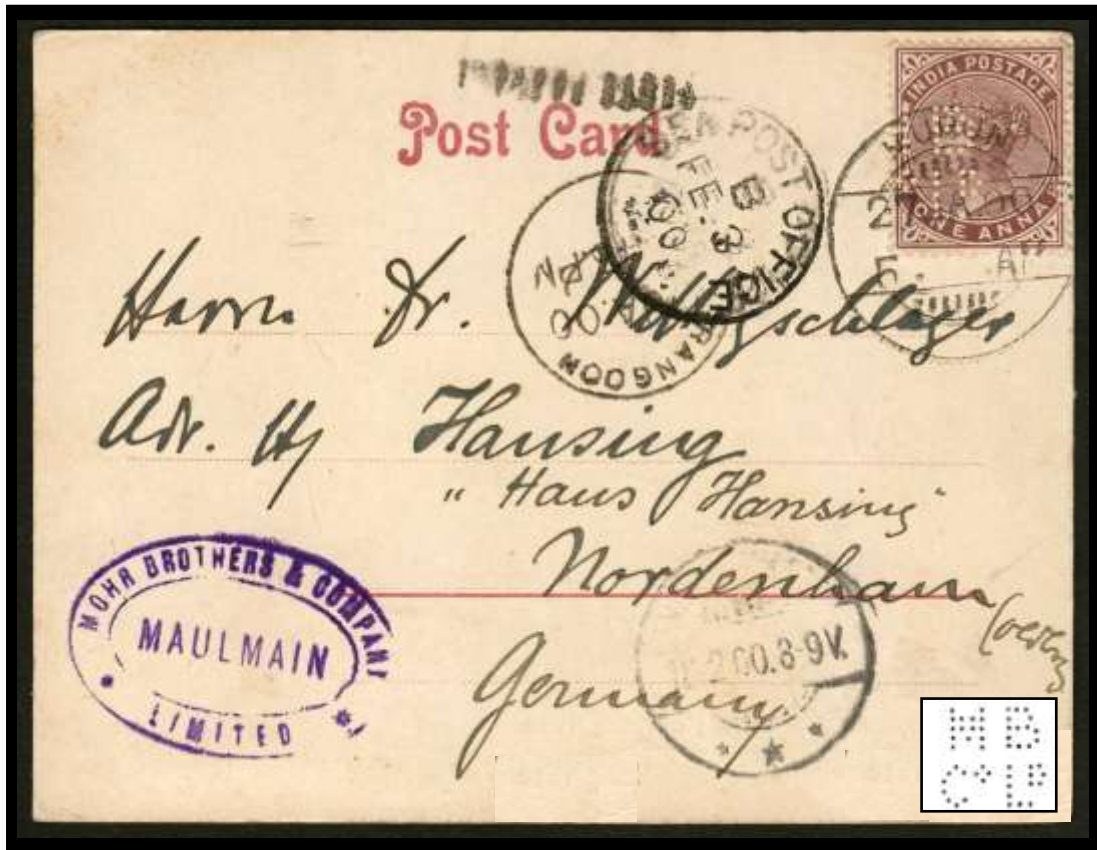 Post Card
INDIA POSTAGE
ONE ANNA
SEA POST OFFICE
B
FE. 3
00
RANGOON
00
Herrn Dr.
Adr. Hy Hansing
"Haus Hansing"
Nordenham
Germany
2.00.8-9V.
MOHR BROTHERS & COMPANY
MAULMAIN
LIMITED
M B
Co Ld